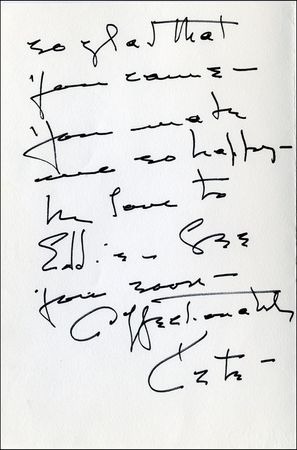 so glad that
you came –
You make
me so happy –
My love to
Eddie – See
you soon –
Affectionately
Kate –